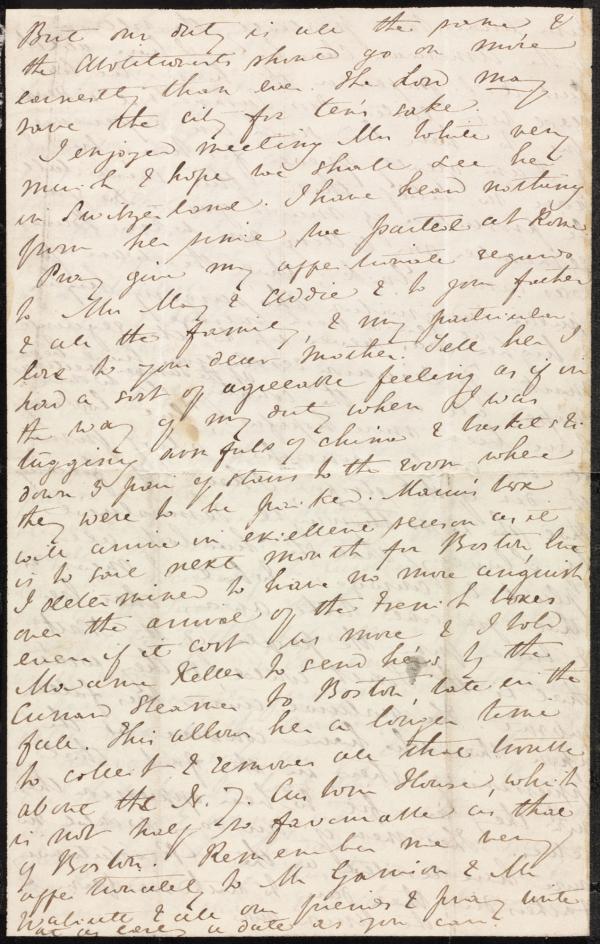 But our duty is all the same &
the Abolitionists should go on more
earnestly than ever. The Lord may
save the city for ten's sake.
I enjoyed meeting Mrs White very
much & hope we shall see her
in Switzerland. I have heard nothing
from her since we parted at Rome
Pray give my affectionate regards
to Mrs May & Addie & to your father
& all the family, & my particular
love to your dear Mother. Tell her I
had a sort of agreeable feeling as if in
the way of my duty when I was
lugging arm fuls of china & baskets &c
down 5 pair of stairs to the room where
they were to be packed. Manin's box
will arrive in excellent season as it
is to sail next month for Boston,
I determined to have no more anguish
over the arrival of the French boxes
even if it cost us more & I told
Madame Keller to send hers by the
Cunard Steamer to Boston, late in the
fall. This allows her a longer time
to collect & removes all that trouble
about the N. Y. Custom House, which
is not half so favourable as that
of Boston. Remember me very
affectionately to Mr Garrison & Mr
Wallcutt & all our friends & pray write
at as early a date as you can.